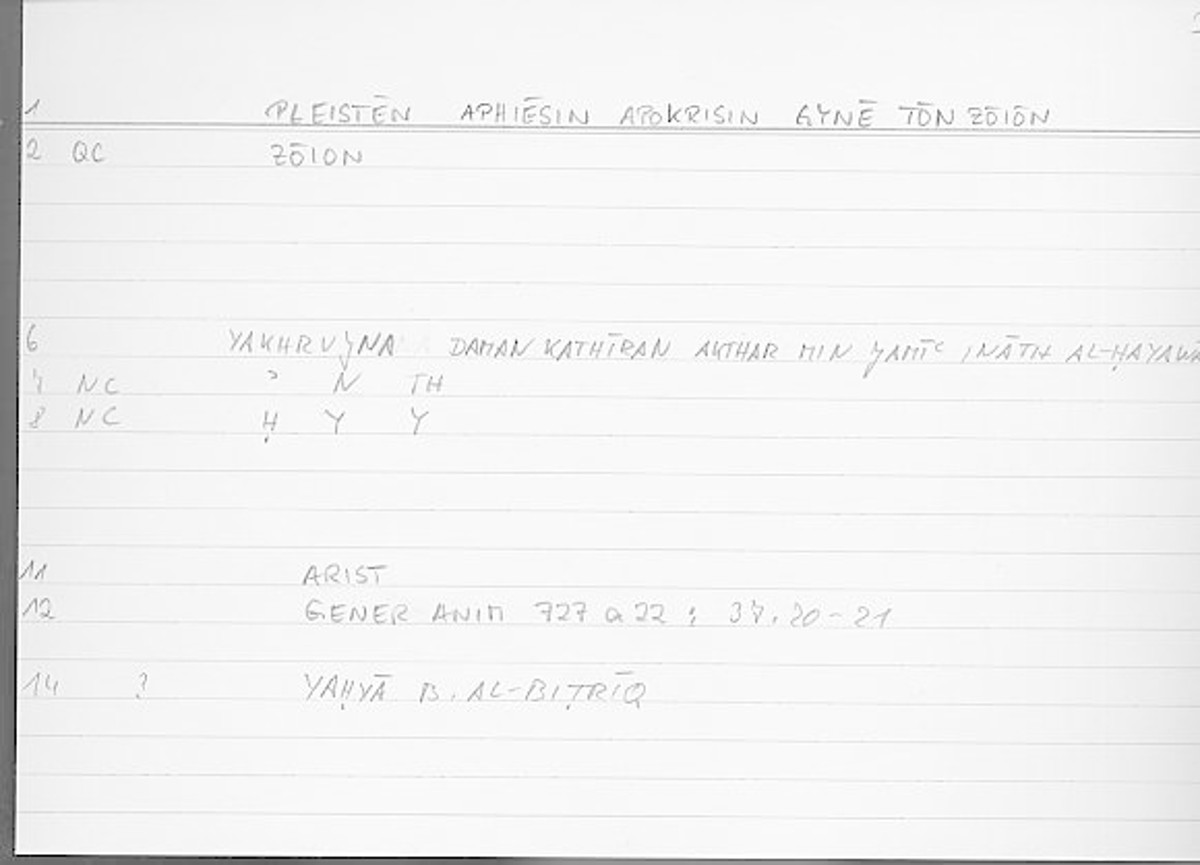 1 PLEISTĒN APHIĒSIN APOKRISIN GYNĒ TŌN ZŌIŌN
2 QC ZŌION
6 DAMAN KATHĪRAN AKTHAR MIN ǦAMĪʿ INĀTH
7 NC ʾ N TH
8 NC Ḥ Y Y
11 ARIST
12 GENER ANIM 727 a 22 ; 37.20-21
14 ? YAḤYĀ B. AL-BIṬRĪQ